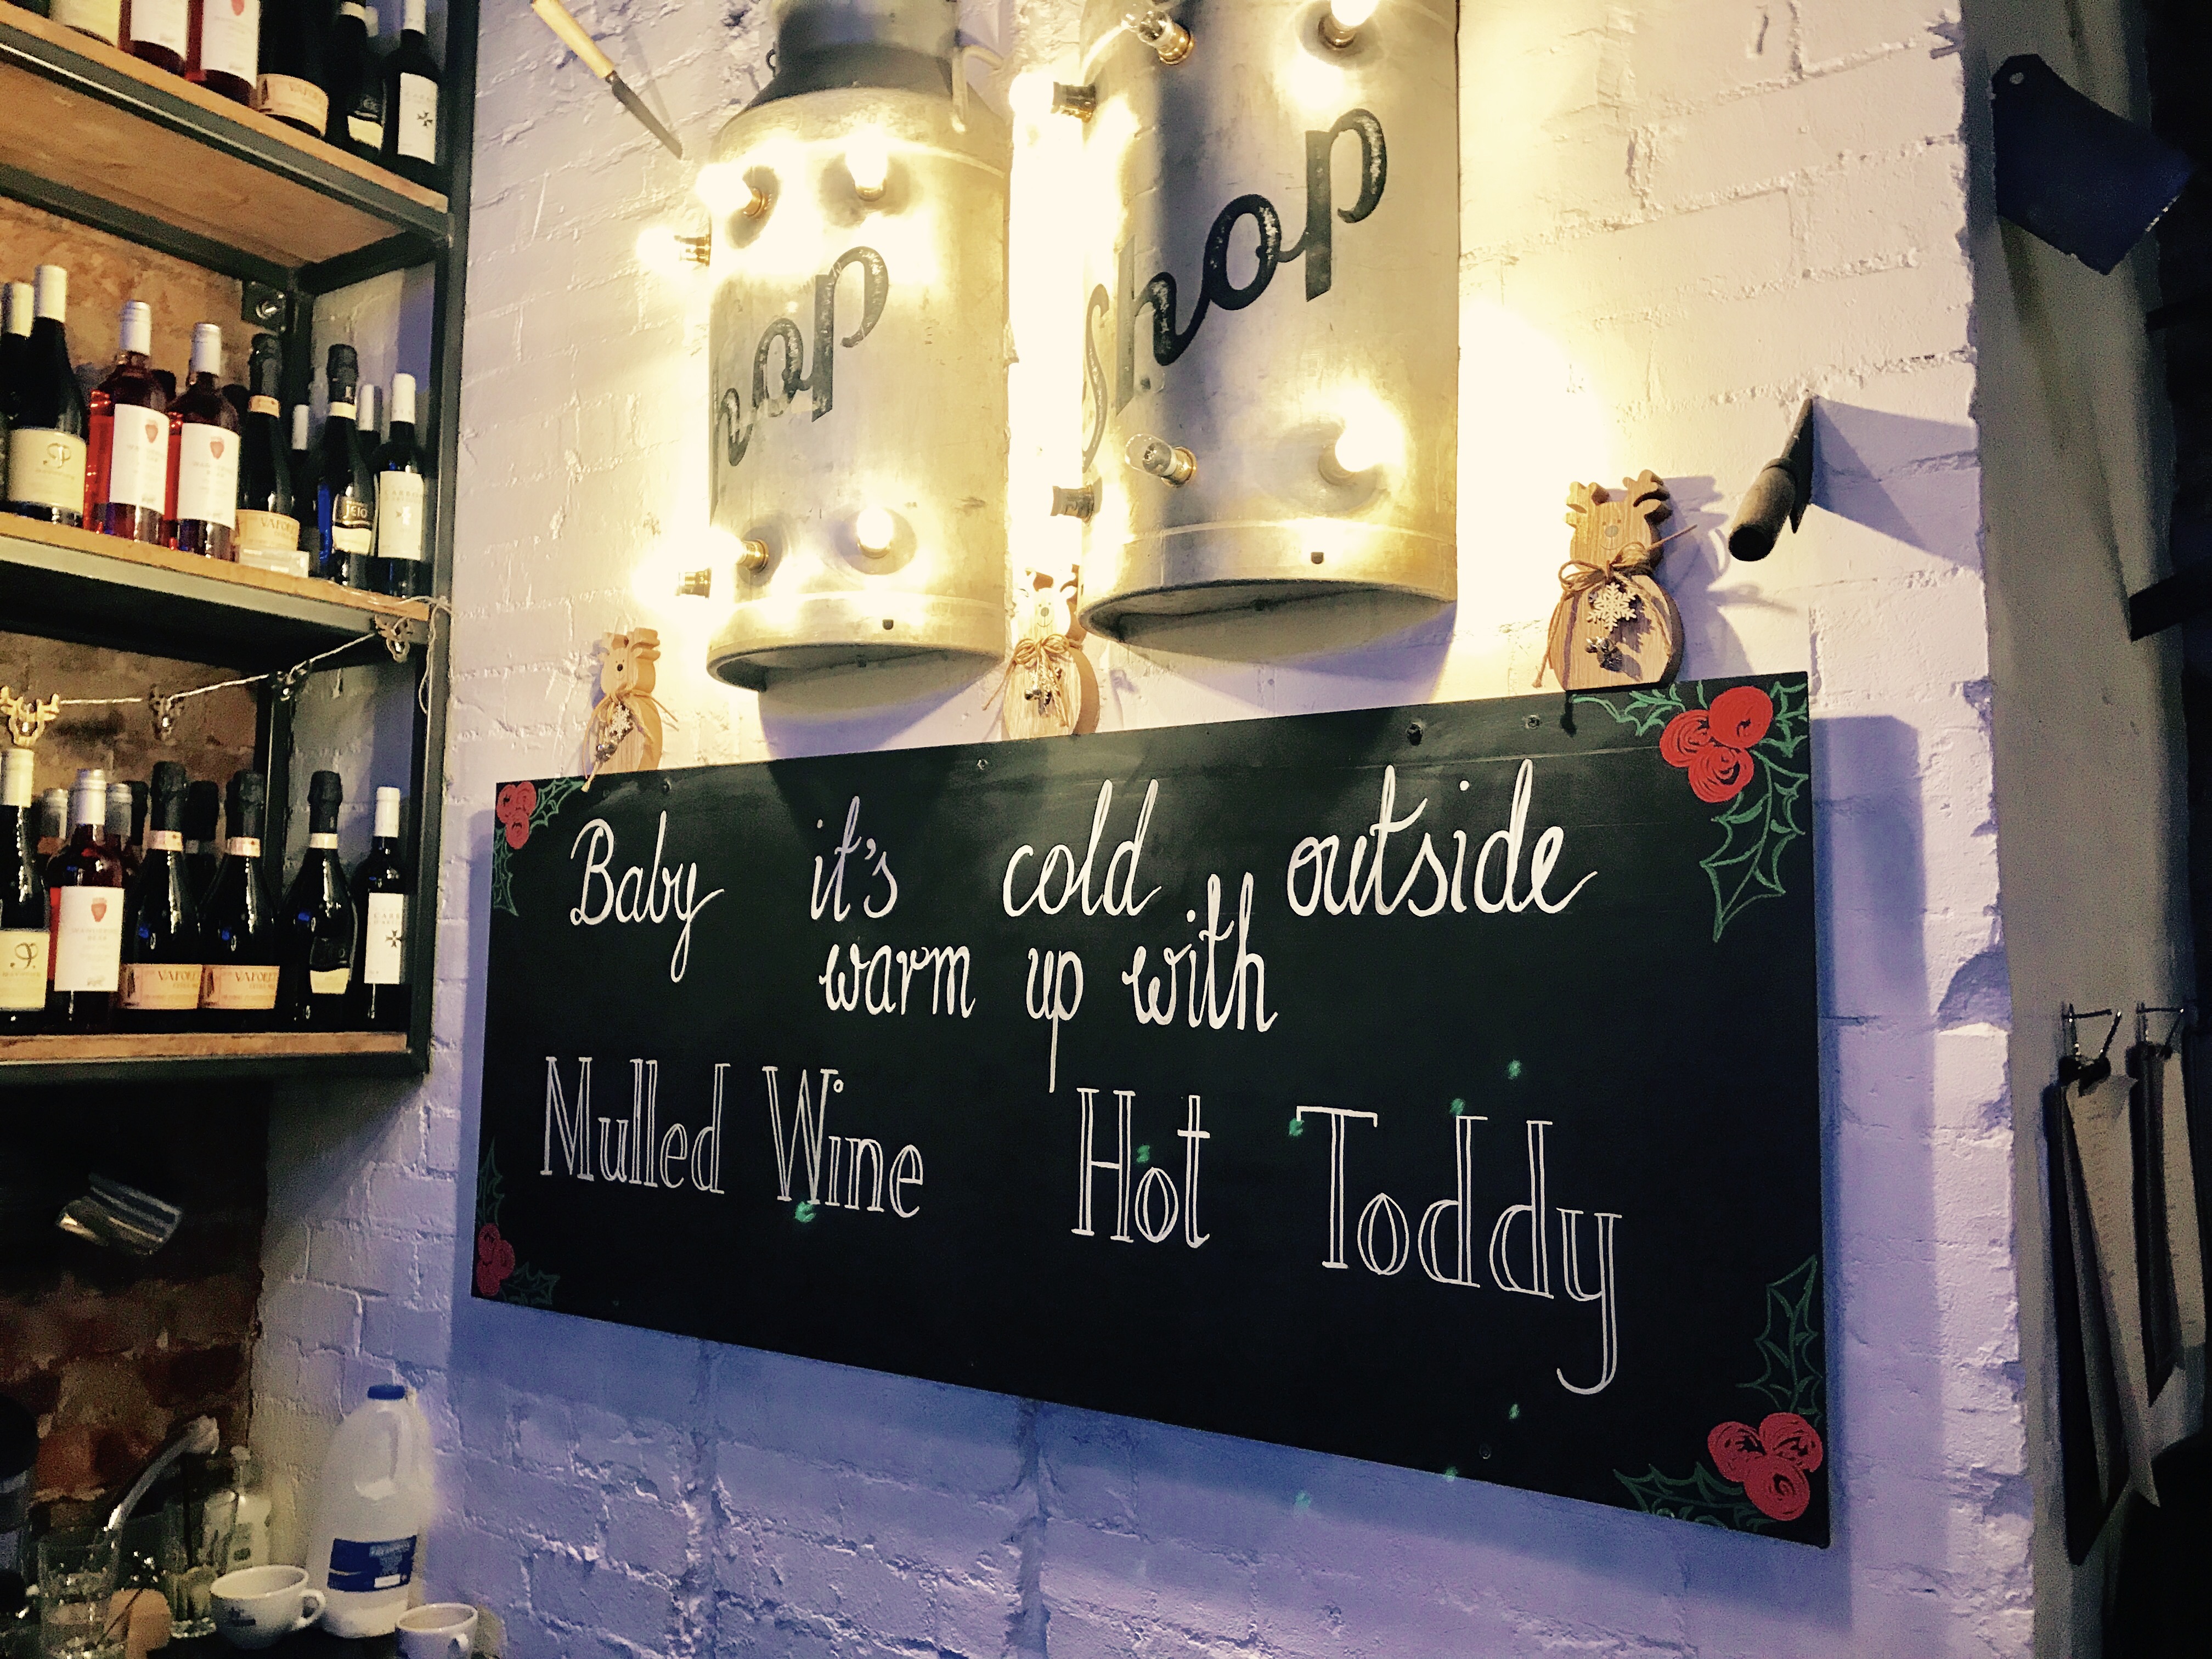 hop
Shop
Baby it's cold outside
warm up with
Mulled Wine Hot Toddy
JEIO